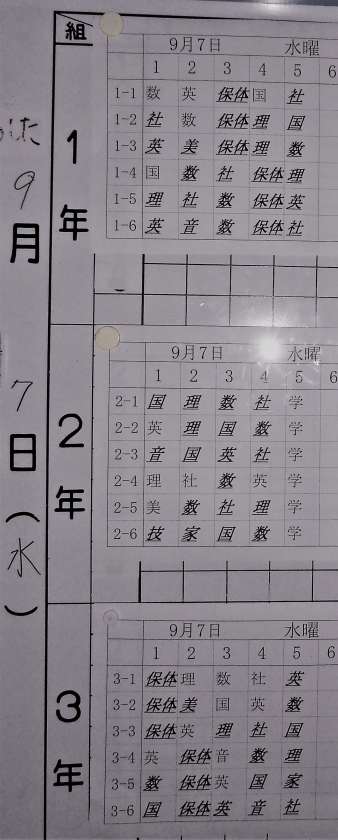 組
9月7日（水）
1年
9月7日 水曜
1 2 3 4 5 6
1-1 数 英 保体 国 社
1-2 社 数 保体 理 国
1-3 英 美 保体 理 数
1-4 国 数 社 保体 理
1-5 理 社 数 保体 英
1-6 英 音 数 保体 社
2年
9月7日 水曜
1 2 3 4 5 6
2-1 国 理 数 社 学
2-2 英 理 国 数 学
2-3 音 国 英 社 学
2-4 理 社 数 英 学
2-5 美 数 社 理 学
2-6 技 家 国 数 学
3年
9月7日 水曜
1 2 3 4 5 6
3-1 保体 理 数 社 英
3-2 保体 美 国 英 数
3-3 保体 英 理 社 国
3-4 英 保体 音 数 理
3-5 数 保体 英 国 家
3-6 国 保体 英 音 社